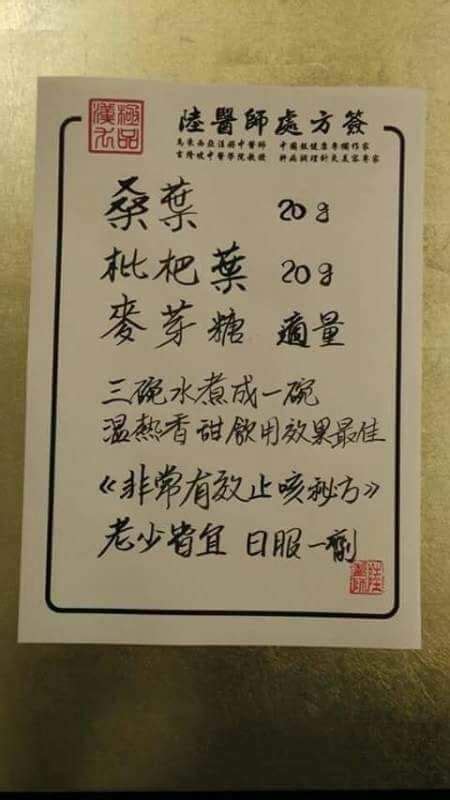 極品
漢方
陸醫師處方簽
馬來西亞注冊中醫師 中國報健康專欄作家
吉隆坡中醫學院教授 科病調理針灸美容專家
桑葉 20g
枇杷葉 20g
麥芽糖 適量
三碗水煮成一碗
溫熱香甜飲用效果最佳
《非常有效止咳秘方》
老少皆宜 日服一劑